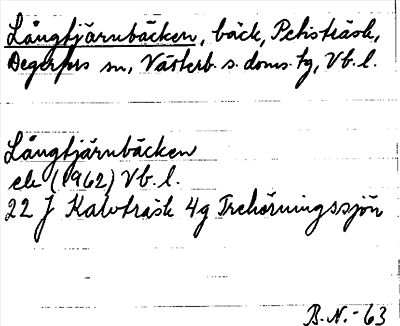 Långtjärnbäcken, bäck, Petisträsk,
Degerfors sn, Västerb. s. doms. tg, Vb. l.
Långtjärnbäcken
ek (1962) Vb. l.
22 J Kalvträsk 4g Trehörningssjön
B. N. - 63